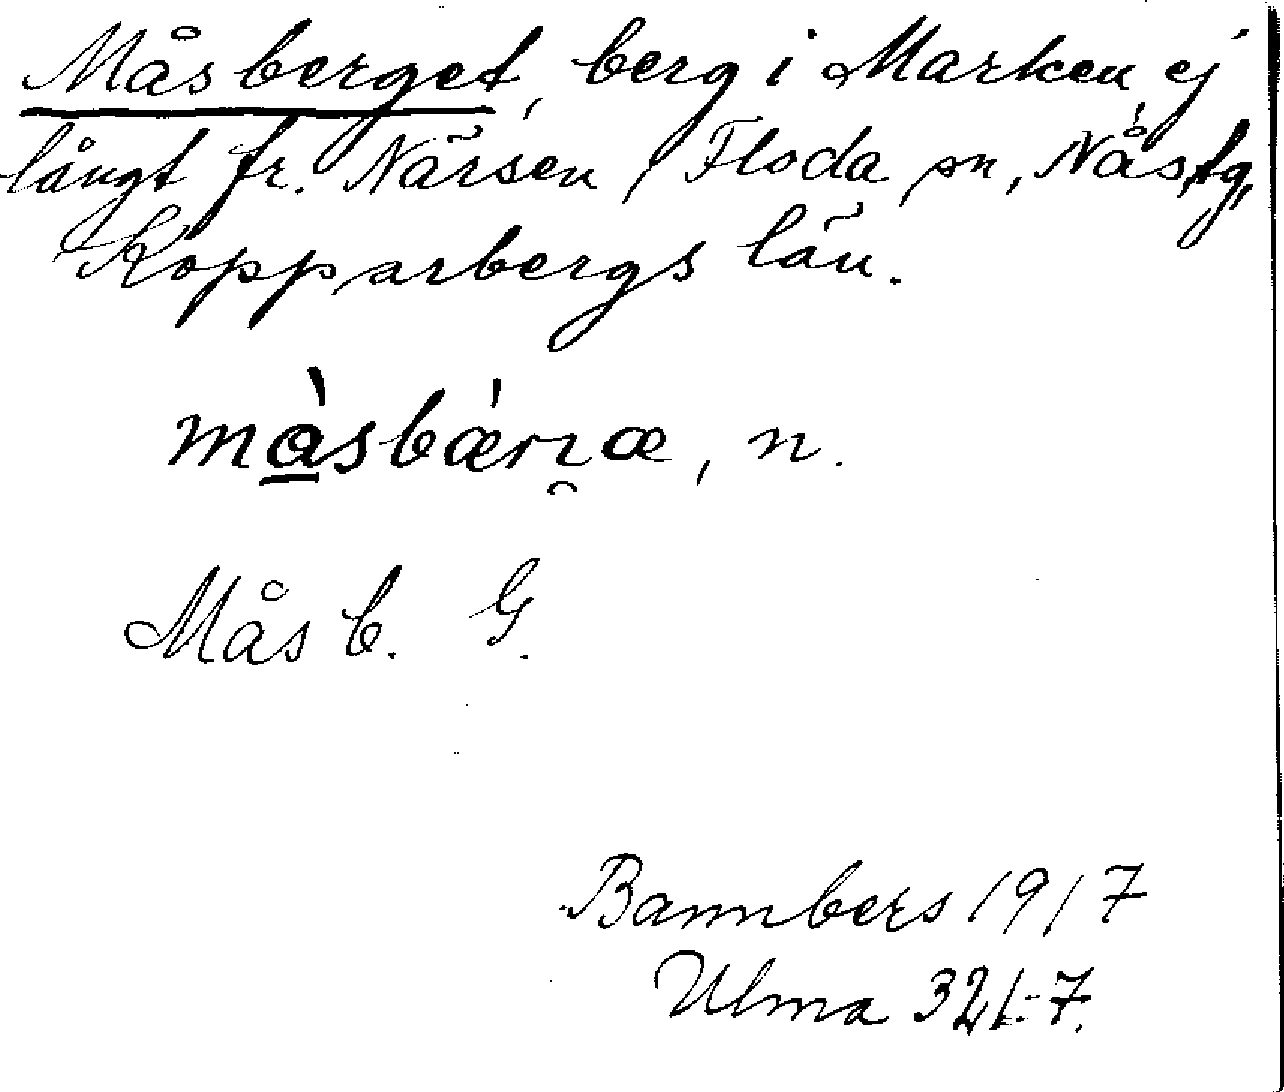 Måsberget, berg i Marken ej
långt fr. Närsen, Floda sn, Nås tg,
Kopparbergs län.
mà̲sbæ̀rɲ̯æ, n.
Mås b. G.
Bannbers 1917
Ulma 321:7.